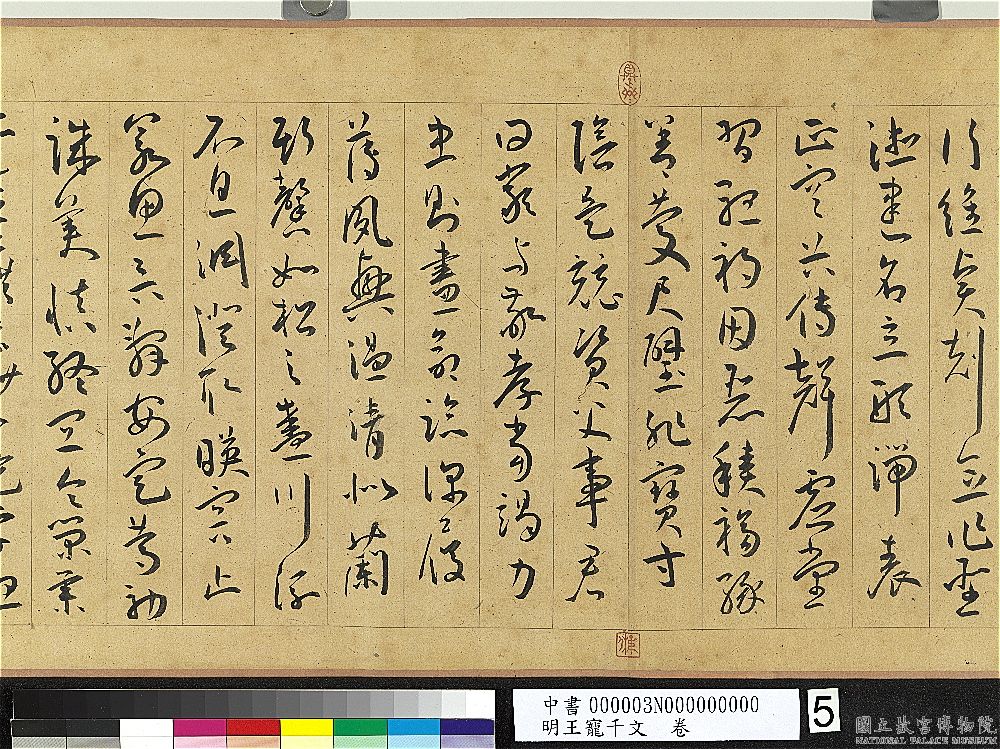 行維賢剋念作聖
德建名立形端表
正空谷傳聲虛堂
習聽禍因惡積福緣
善慶尺璧非寶寸
陰是競資父事君
曰嚴與敬孝當竭力
忠則盡命臨深履
薄夙興溫清似蘭
斯馨如松之盛川流
不息淵澄取映容止
若思言辭安定篤初
誠美慎終宜令榮業
中書 000003N000000000
明王寵千文 卷
5
國立故宮博物院
NATIONAL PALACE MUSEUM